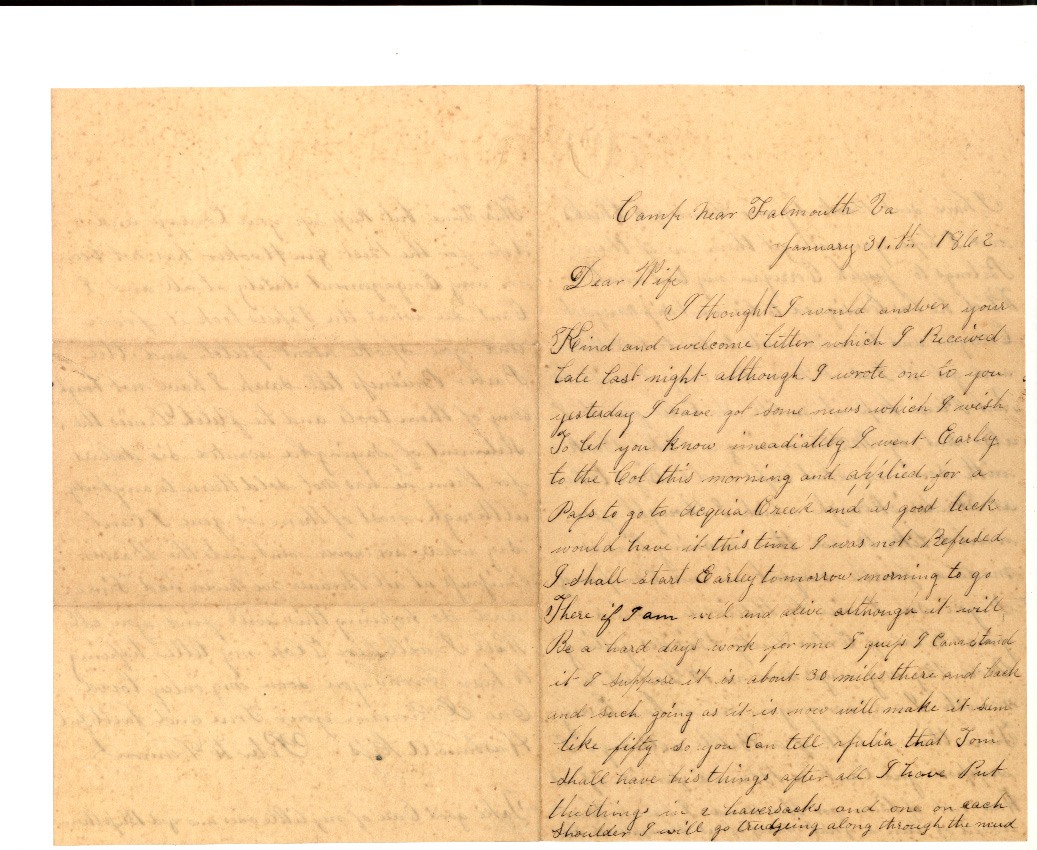 Camp Near Falmouth Va
January 31.th 1862
Dear Wife
I thought I would answer your
Kind and welcome letter which I Received
late last night although I wrote one to you
yesterday I have got some news which I wish
To let you know imeadiatily I went Earley
to the Col this morning and applied for a
Pass to go to Acquia Creek and as good luck
would have it this time I was not Refused
I shall start Earley tomorrow morning to go
There if I am well and alive although it will
Be a hard days work for me I guess I Can stand
it I suppose it is about 30 miles there and back
and such going as it is now will make it seem
like fifty so you Can tell that Tom
shall have his things after all I have Put
the things in 2 haversacks and one on each
shoulder I will go trudgeing along through the mud